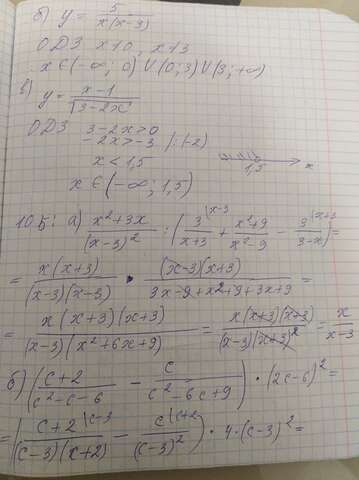 б) y = 5/(x(x-3))
ОДЗ x≠0, x≠3
x ∈ (-∞; 0) ∪ (0; 3) ∪ (3; +∞)
в) y = (x-1)/√(3-2x)
ОДЗ 3-2x>0
-2x>-3 /:(-2)
x < 1,5
1,5 x
x ∈ (-∞; 1,5)
10.5: а) (x²+3x)/(x-3)² : (3/(x+3) |x-3 + (x²+9)/(x²-9) - 3/(3-x) |x+3)=
= x(x+3)/((x-3)(x-3)) · (x-3)(x+3)/(3x-9+x²+9+3x+9) =
= x(x+3)(x+3)/((x-3)(x²+6x+9)) = x(x+3)(x+3)/((x-3)(x+3)²) = x/(x-3)
б) ((c+2)/(c²-c-6) - c/(c²-6c+9)) · (2c-6)²=
= ((c+2 |c-3)/((c-3)(x+2)) - (c |c+2)/(c-3)²) · 4·(c-3)²=